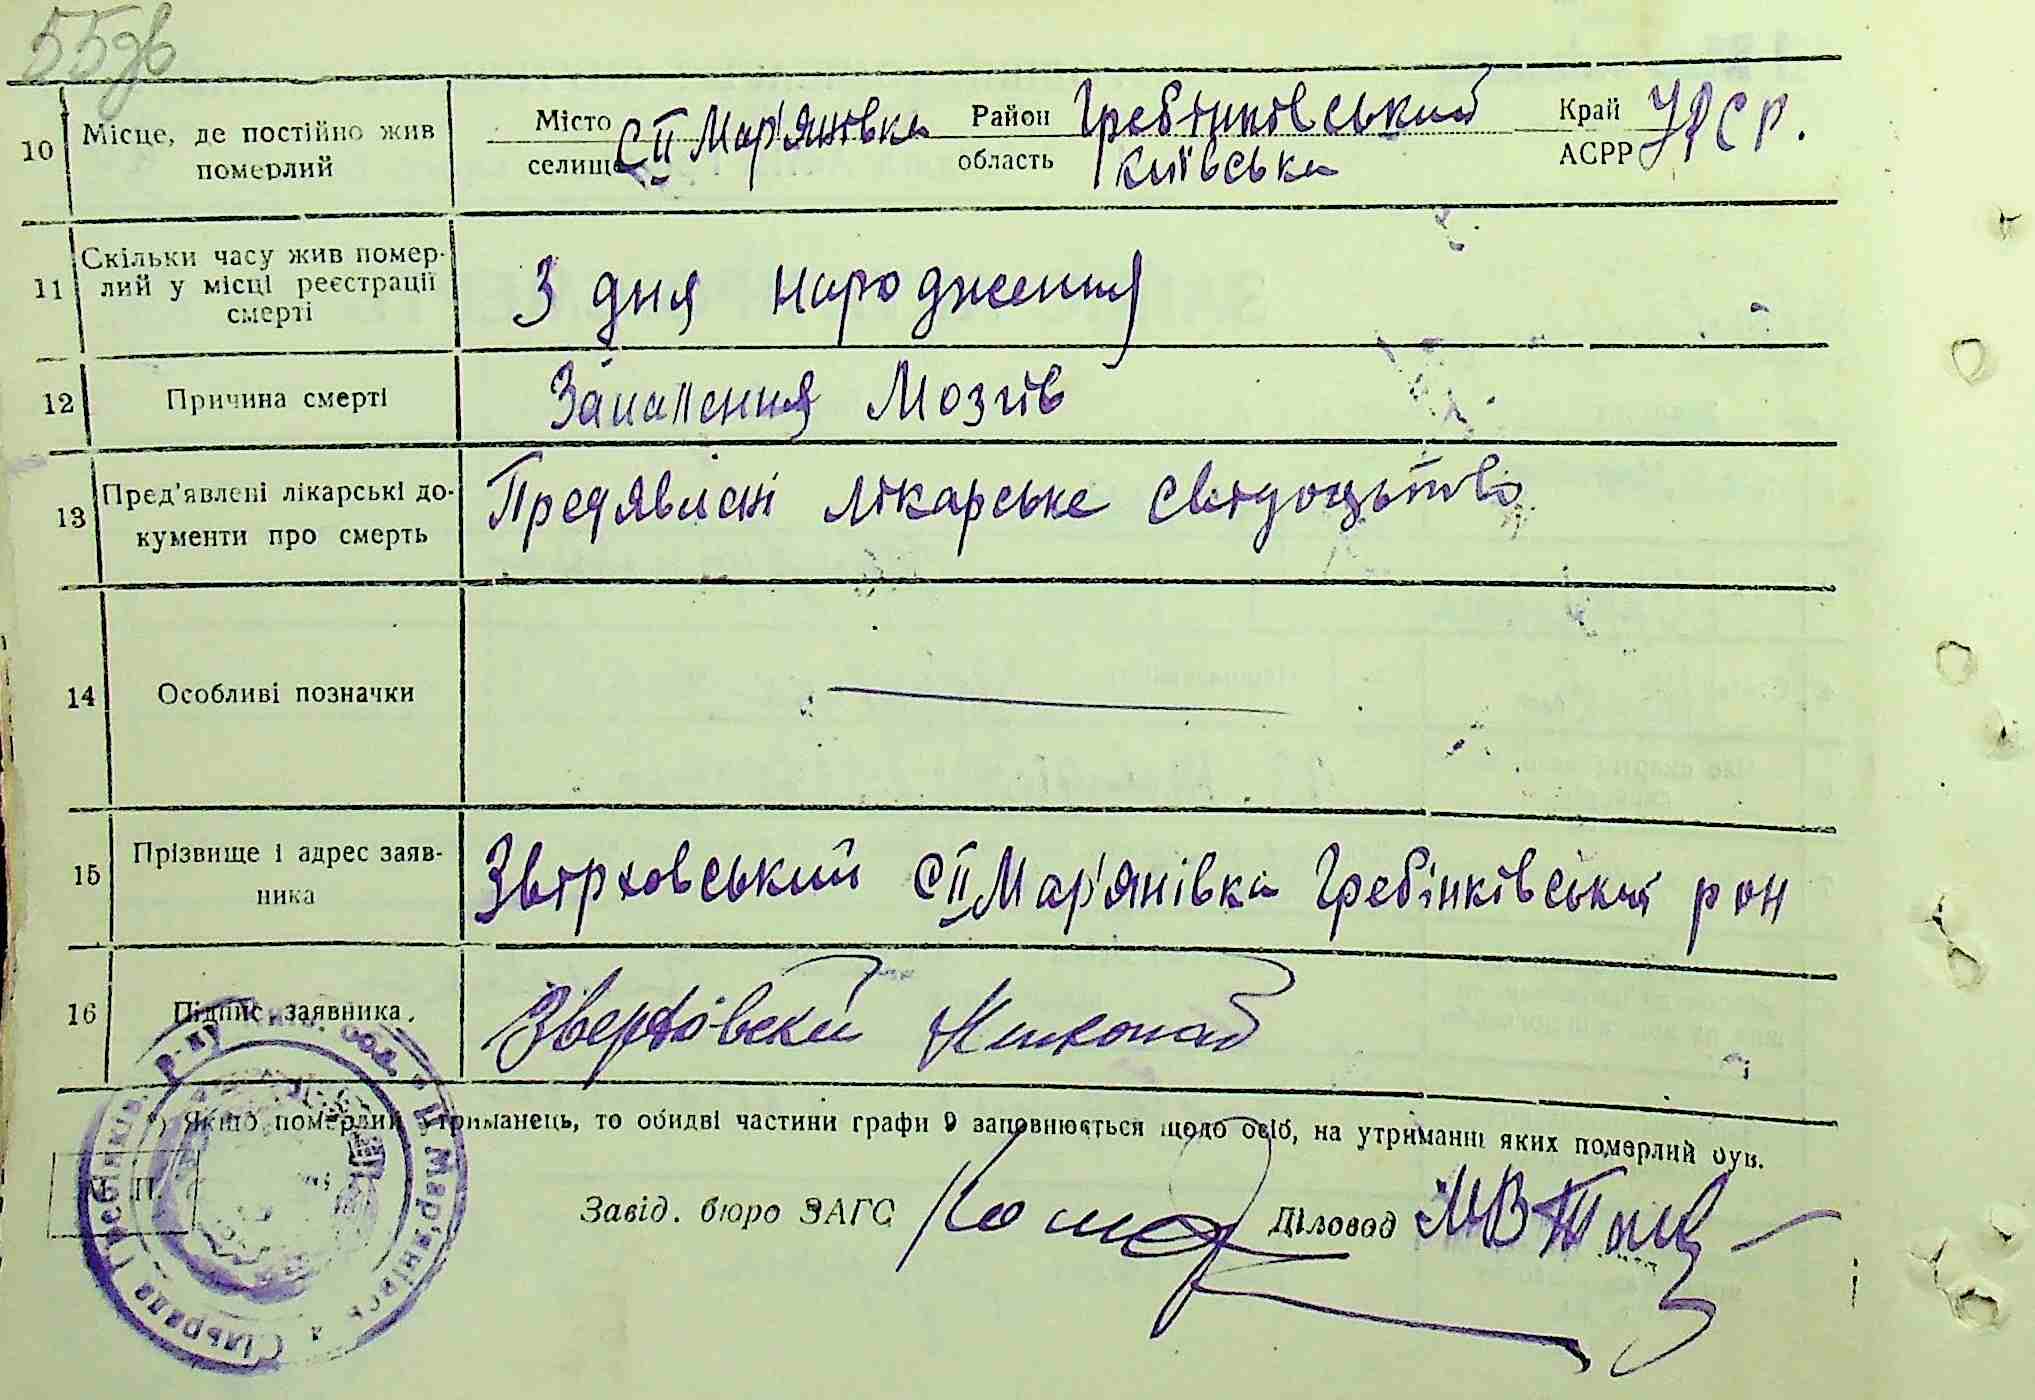 55зв
10 Місце, де постійно жив Місто С ІІ Мар'янівка Район Гребінківський Край УРСР.
померлий селище область Київська АСРР
11 Скільки часу жив помер-
лий у місці реєстрації З дня народження
смерті
12 Причина смерті Запалення Мозгів
13 Пред'явлені лікарські до- Предявлені лікарське свідоцьтво
кументи про смерть
14 Особливі позначки
15 Прізвище і адрес заяв- Звірховський С ІІ Мар'янівка Гребінківський рон
ника
16 Підпис заявника.
*) Якщо померлий утриманець, то обидві частини графи 9 заповнюється щодо осіб, на утриманні яких померлий був.
М. П.
Завід. бюро ЗАГС Діловод
Сільрада Гребінків. р-ну Київ. обл. ІІ Мар'янівсь